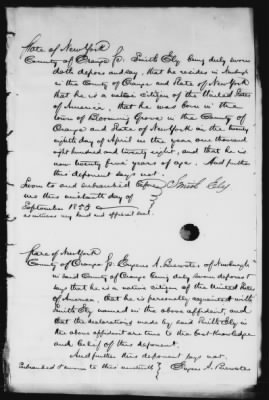 State of New York
County of Orange Ss. Smith Ely being duly sworn
doth depose and say, that he resides in Newburgh
in the County of Orange and State of New York
that he is a native citizen of the United States
of America, that he was born in the
town of Blooming Grove in the County of
Orange and State of New York on the twenty
eighth day of April in the year one thousand
eight hundred and twenty eight, and that he is
now twenty five years of age. And further
this deponent says not.
Sworn to and subscribed before
me this nineteenth day of
Smith Ely
September 1853
as witness my hand and official seal.
State of New York
County of Orange Ss. Eugene A. Brewster, of Newburgh
in said County of Orange being duly sworn deposes &
says that he is a native citizen of the United States
of America, that he is personally acquainted with
Smith Ely named in the above affidavit, and
that the declarations made by said Smith Ely in
the above affidavit are true to the best knowledge
and belief of this deponent.
And further this deponent says not.
Subscribed & sworn to this nineteenth
Eugene A. Brewster